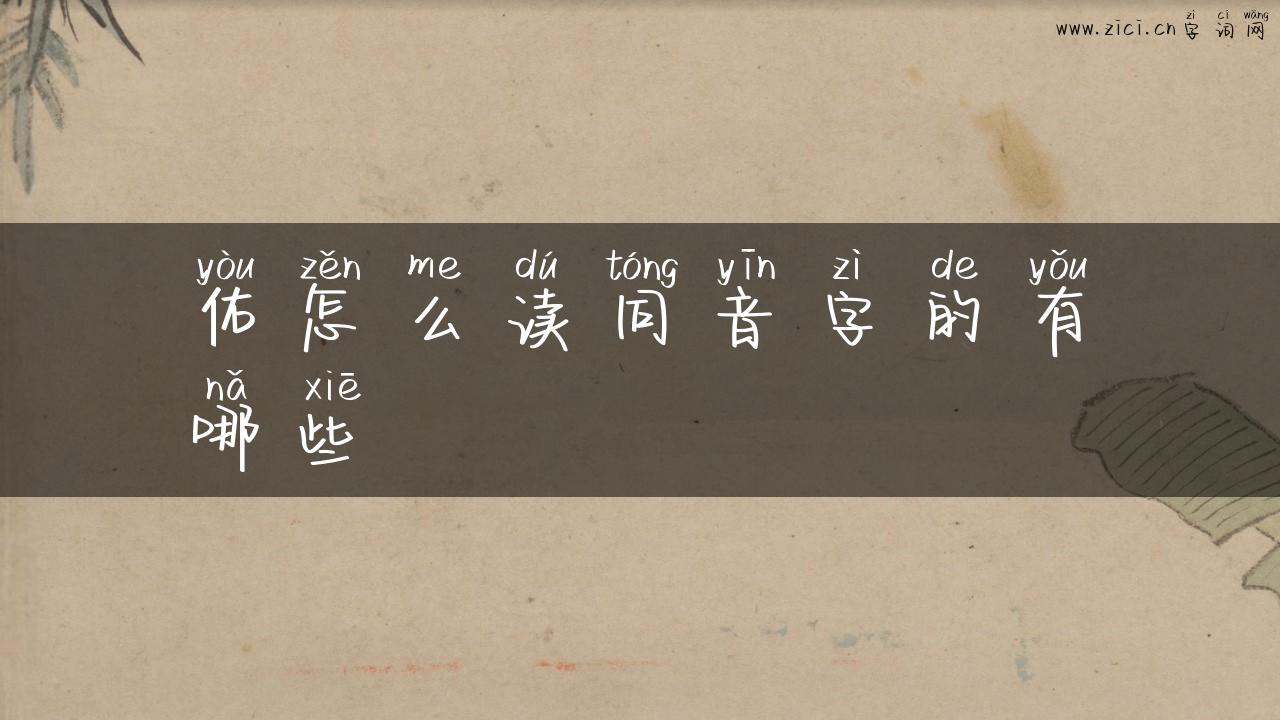 zì cí wǎng
www.zici.cn 字词网
yòu zěn me dú tóng yīn zì de yǒu
佑怎么读同音字的有
nǎ xiē
哪些